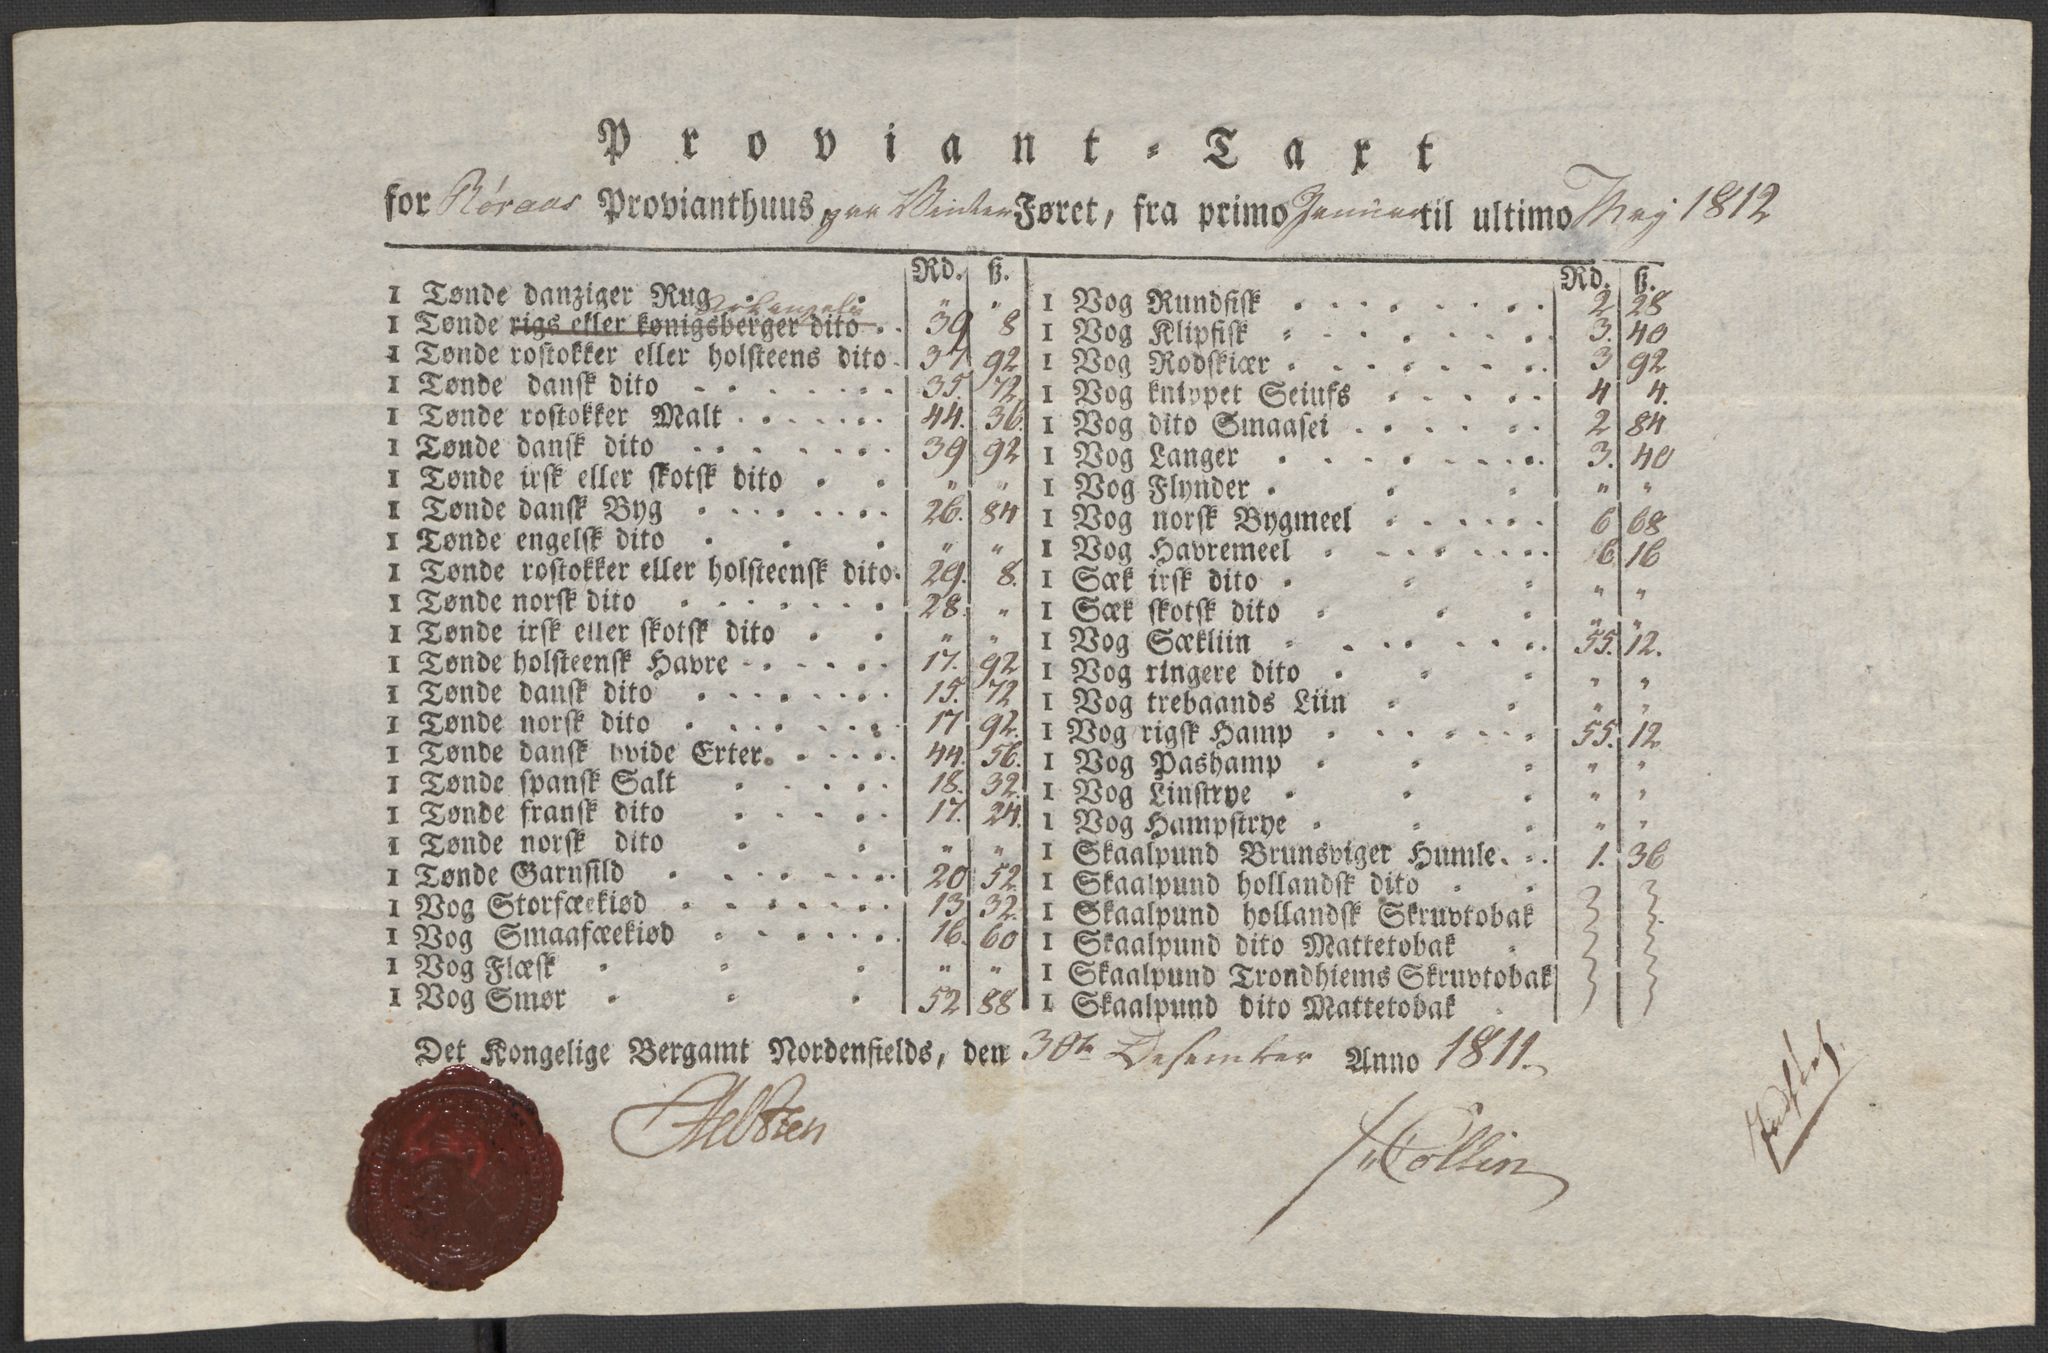 Proviant-Taxt
for Röraas Provianthuus paa Vinter Føret, fra primo Januar til ultimo May 1812
Rd. ß.
1 Tønde danziger Rug " "
1 Tønde rigs eller kønigsberger dito 39 8
1 Tønde rostokker eller holsteens dito 37 92
1 Tønde dansk dito 35. 72
1 Tønde rostokker Malt 44. 36.
1 Tønde dansk dito 39 92
1 Tønde irsk eller skotsk dito " "
1 Tønde dansk Byg 26. 84
1 Tønde engelsk dito " "
1 Tønde rostokker eller holsteensk dito 29. 8.
1 Tønde norsk dito 28. "
1 Tønde irsk eller skotsk dito " "
1 Tønde holsteensk Havre 17. 92
1 Tønde dansk dito 15. 72
1 Tønde norsk dito 17 92.
1 Tønde dansk hvide Erter 44. 56.
1 Tønde spansk Salt 18. 32.
1 Tønde fransk dito 17. 24.
1 Tønde norsk dito " "
1 Tønde Garnsild 20 52
1 Vog Storfæekiød 13 32.
1 Vog Smaafæekiød 16. 60
1 Vog Flæsk " "
1 Vog Smør 52 88
Rd. ß.
1 Vog Rundfisk 2 28
1 Vog Klipfisk 3. 40
1 Vog Rodskiær 3 92
1 Vog knippet Seiufs 4 4.
1 Vog dito Smaasei 2 84
1 Vog Langer 3. 40
1 Vog Flynder " "
1 Vog norsk Bygmeel 6 68
1 Vog Havremeel 6 16
1 Sæk irsk dito " "
1 Sæk skotsk dito " "
1 Vog Sækliin 55. 12.
1 Vog ringere dito " "
1 Vog trebaands Liin " "
1 Vog rigsk Hamp 55. 12
1 Vog Pashamp " "
1 Vog Linstrye " "
1 Vog Hampstrye " "
1 Skaalpund Brunsviger Humle 1. 36
1 Skaalpund hollandsk dito
1 Skaalpund hollandsk Skruvtobak
1 Skaalpund dito Mattetobak
1 Skaalpund Trondhiems Skruvtobak
1 Skaalpund dito Mattetobak
Det Kongelige Bergamt Nordenfields, den 30te Desember Anno 1811.
Collin